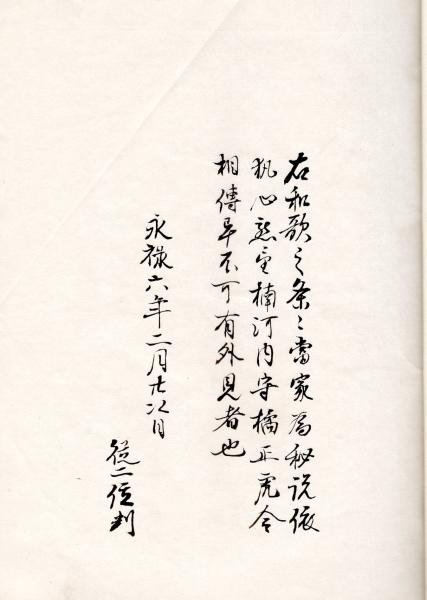 右和歌之条々当家為秘説依
執心懇望楠河内守橘正虎令
相傳畢不可有外見者也
永禄六年二月廿八日
従二位判